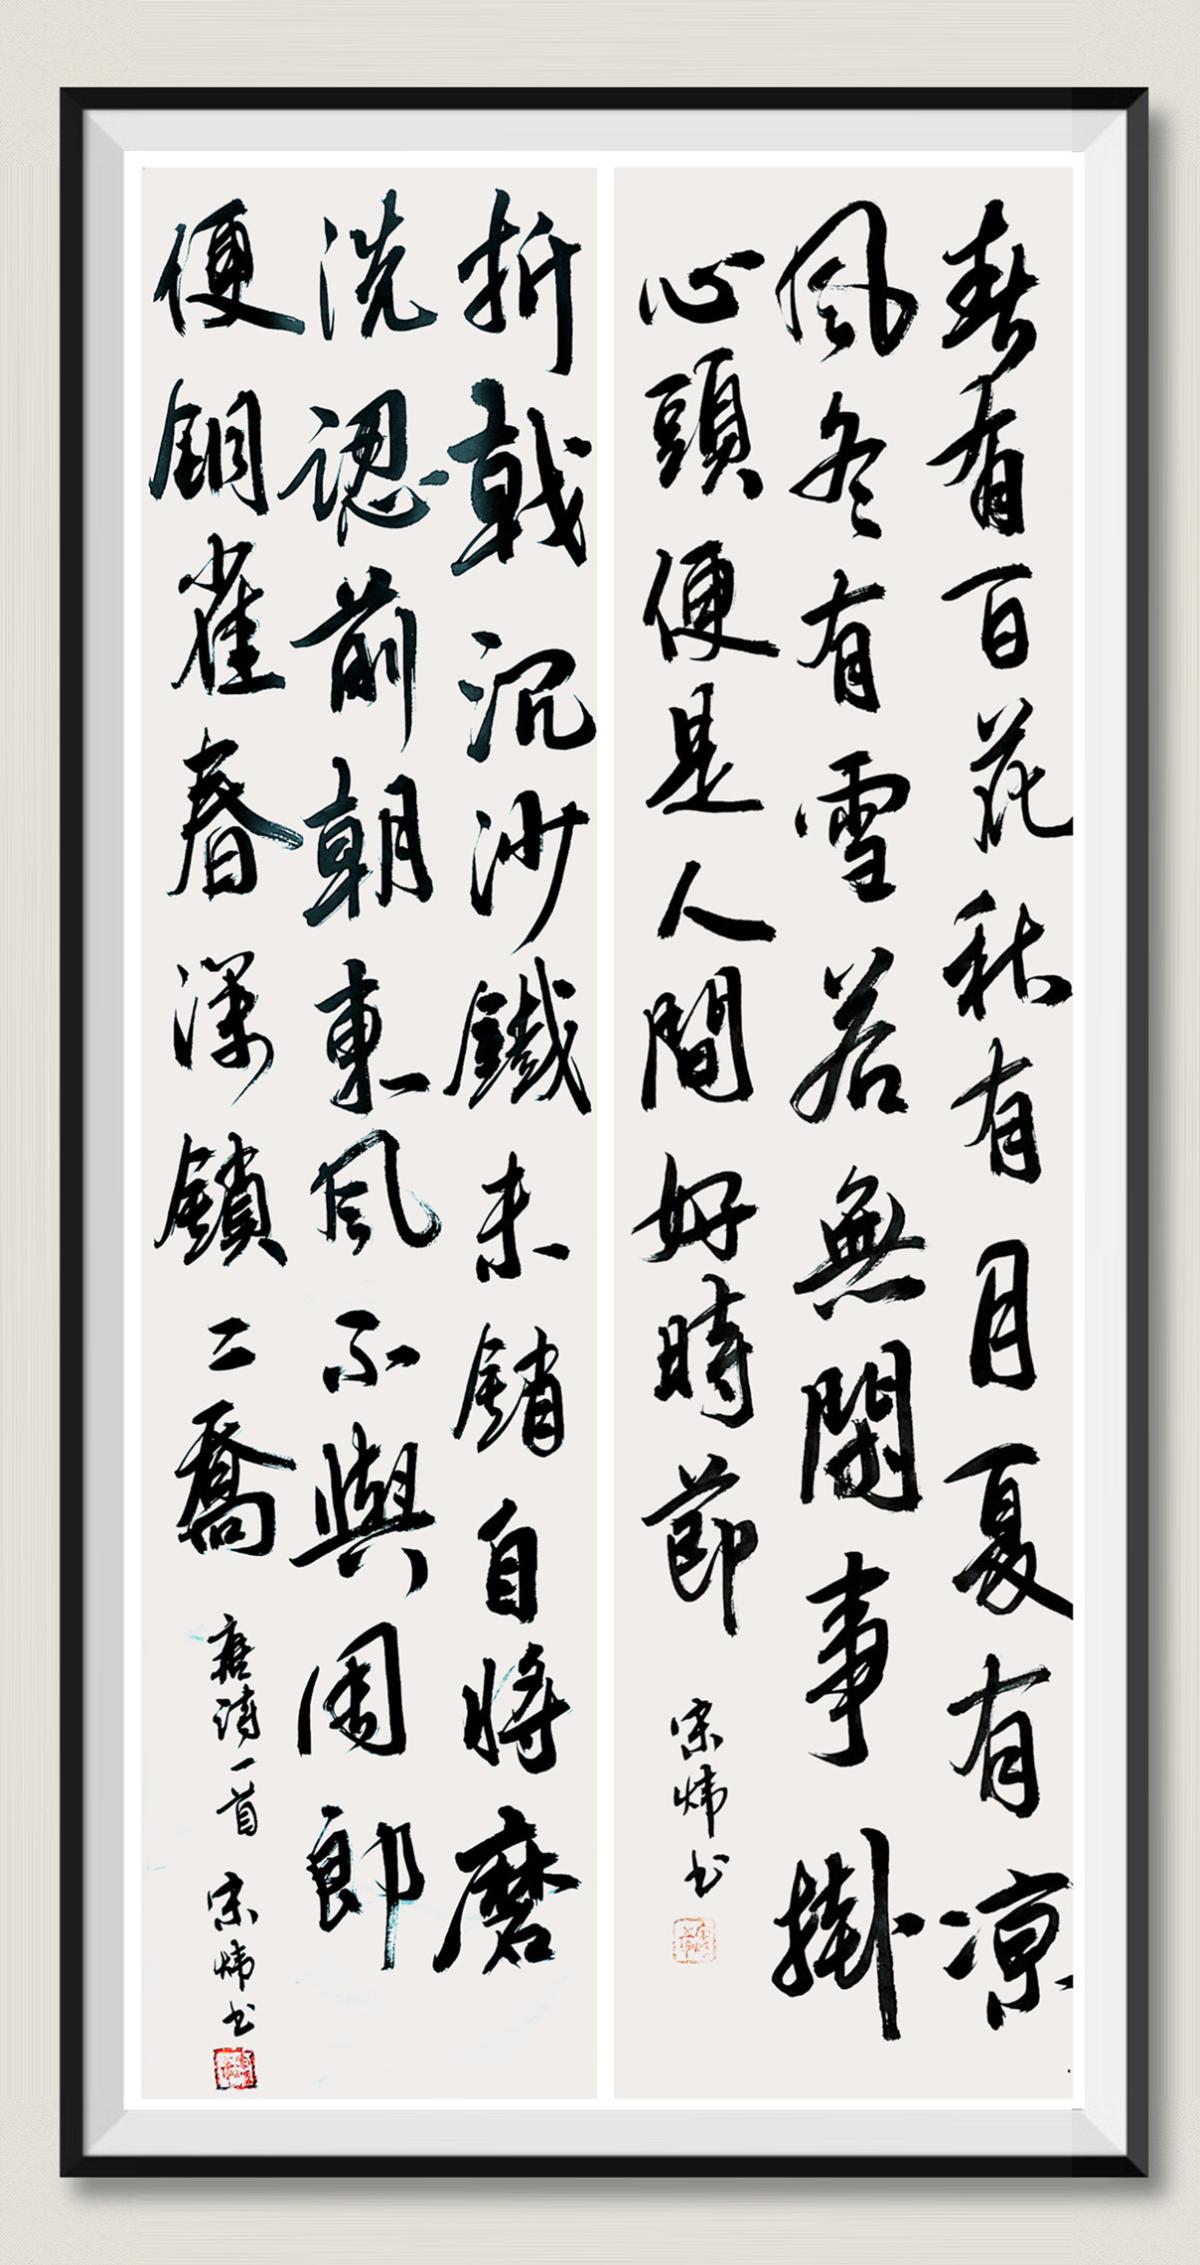 春有百花秋有月夏有凉
風冬有雪若無閑事掛
心頭便是人間好時節 宋炜书
折戟沉沙鐵未銷自將磨
洗認前朝東風不與周郎
便銅雀春深鎖二喬 唐诗一首 宋炜书